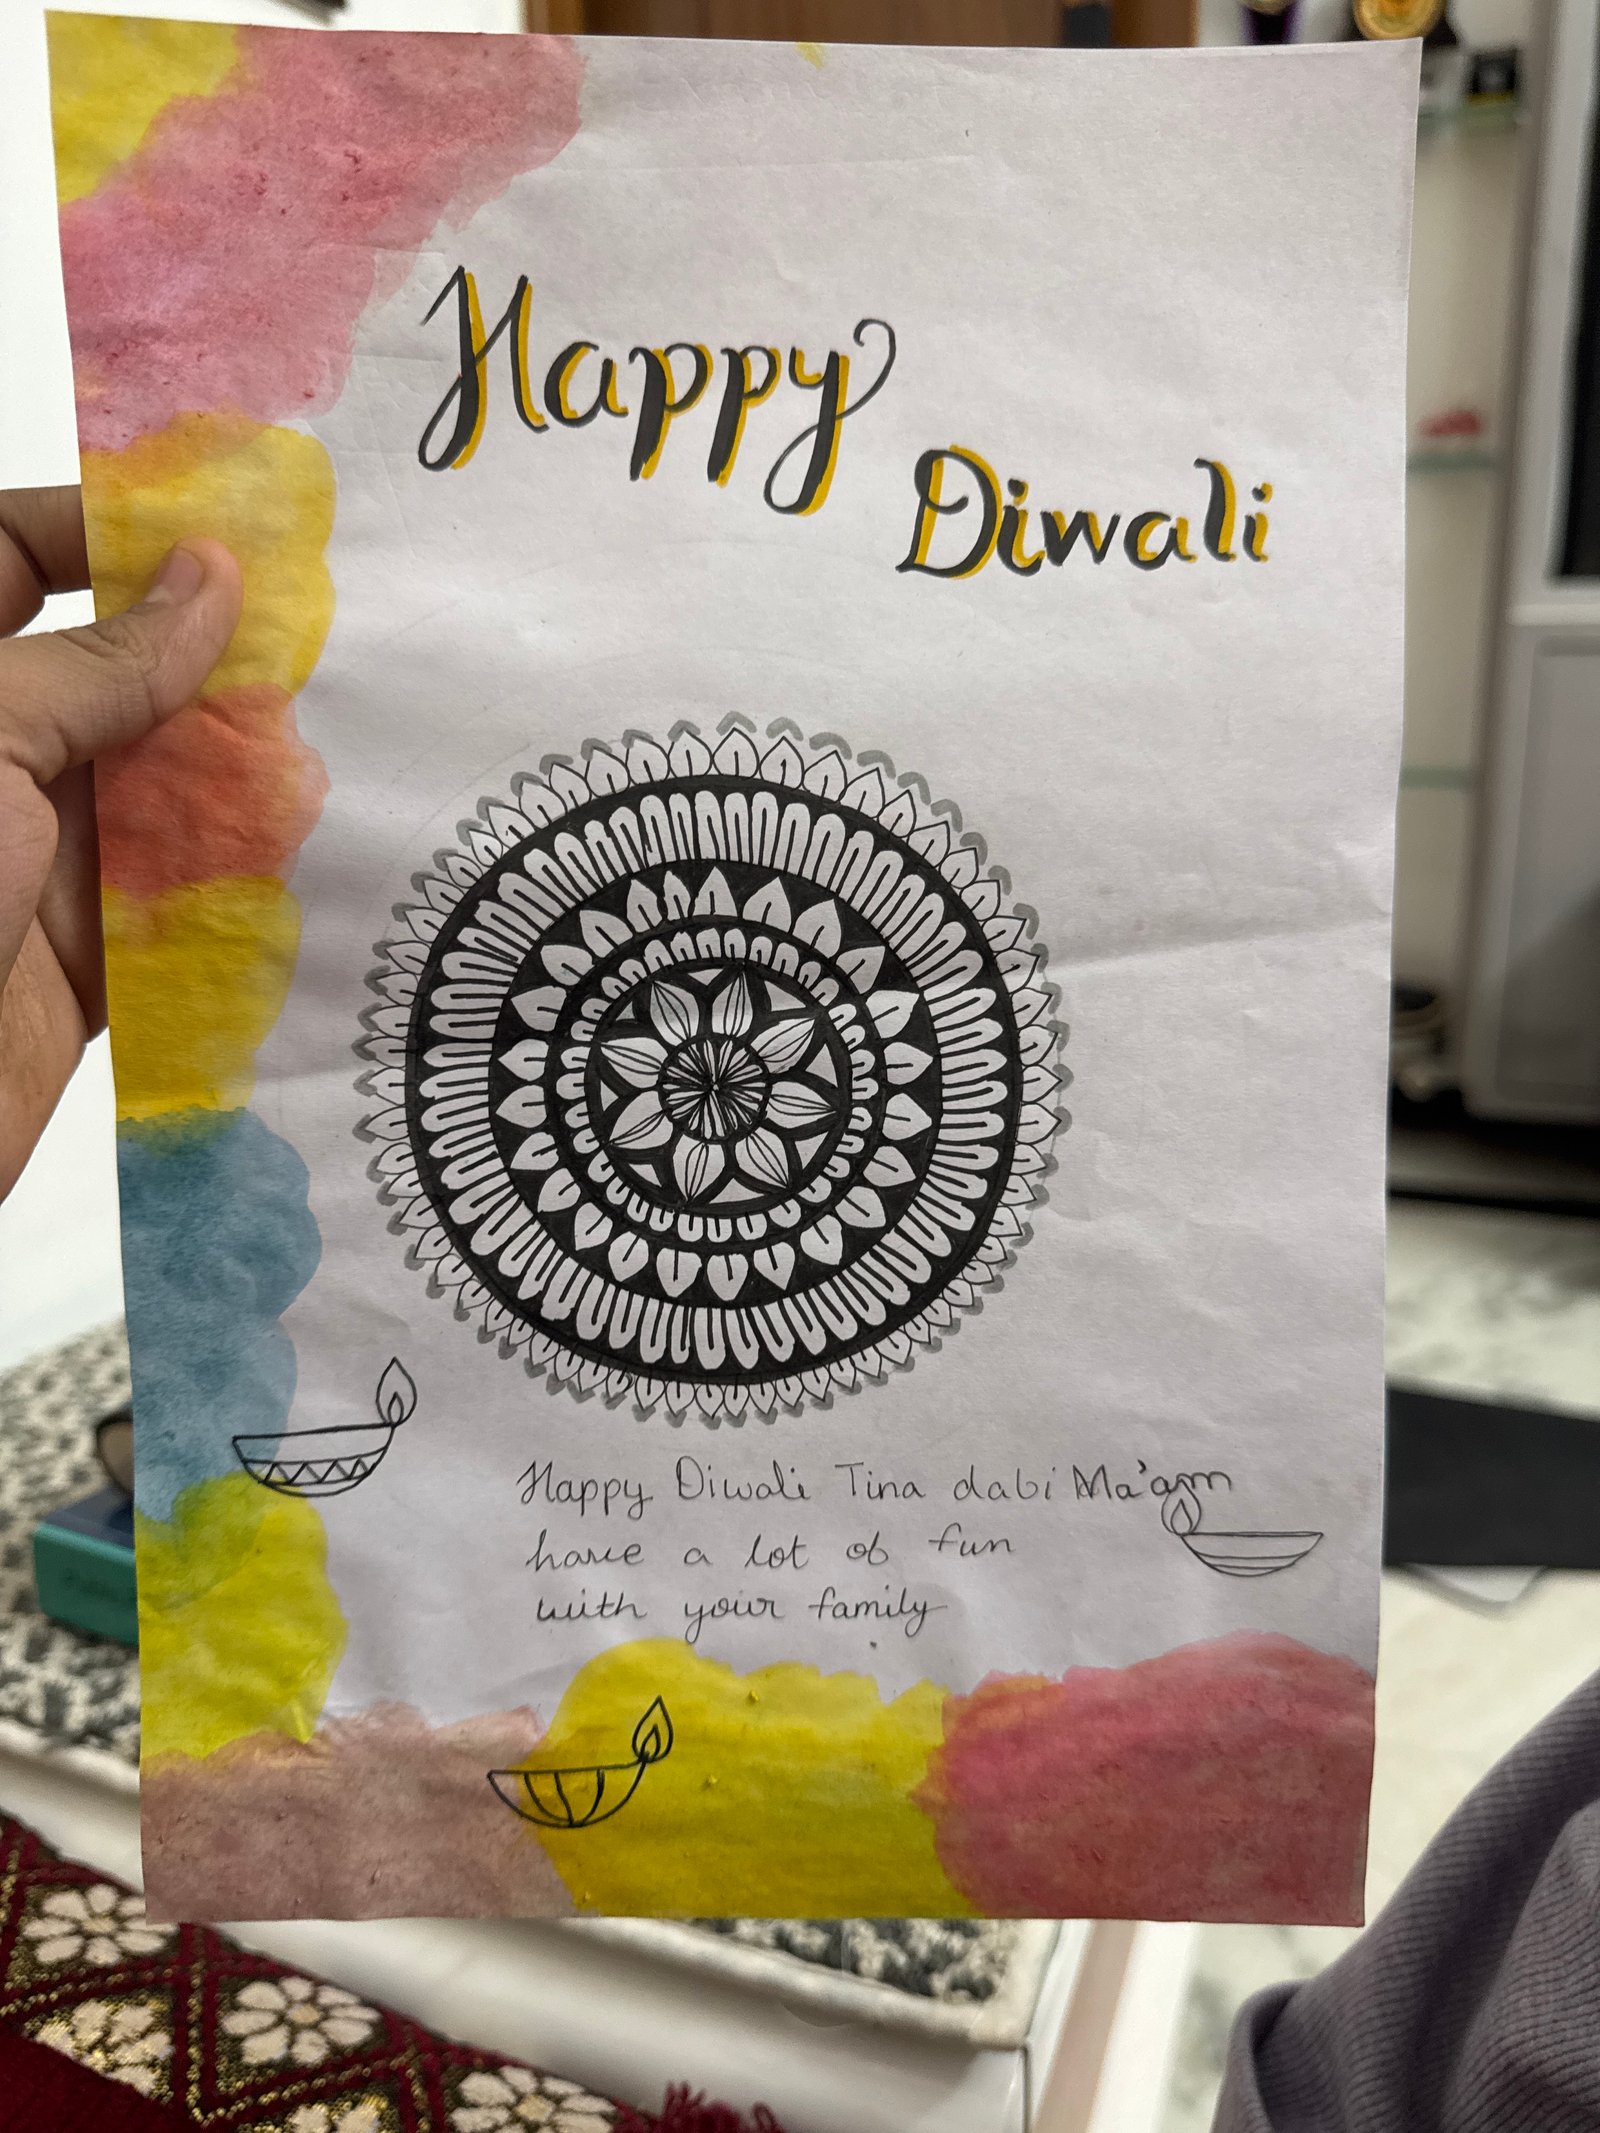 Happy
Diwali
Happy Diwali Tina dabi Ma'am
have a lot of fun
with your family